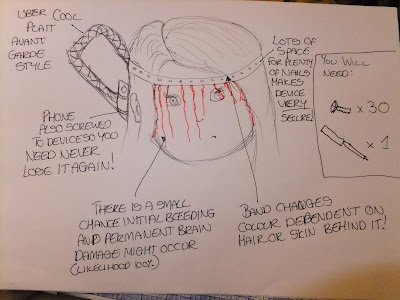 UBER COOL
PLAIT
AVANT
GARDE
STYLE
LOTS OF
SPACE
FOR PLENTY
OF NAILS
MAKES
DEVICE
VERY
SECURE!
YOU WILL
NEED:
x 30
x 1
PHONE
ALSO SCREWED
TO DEVICE SO YOU
NEED NEVER
LOSE IT AGAIN!
THERE IS A SMALL
CHANGE INITIAL BLEEDING
AND PERMANENT BRAIN
DAMAGE MIGHT OCCUR
(LIKELIHOOD 100%)
BAND CHANGES
COLOUR DEPENDENT ON
HAIR OR SKIN BEHIND IT!